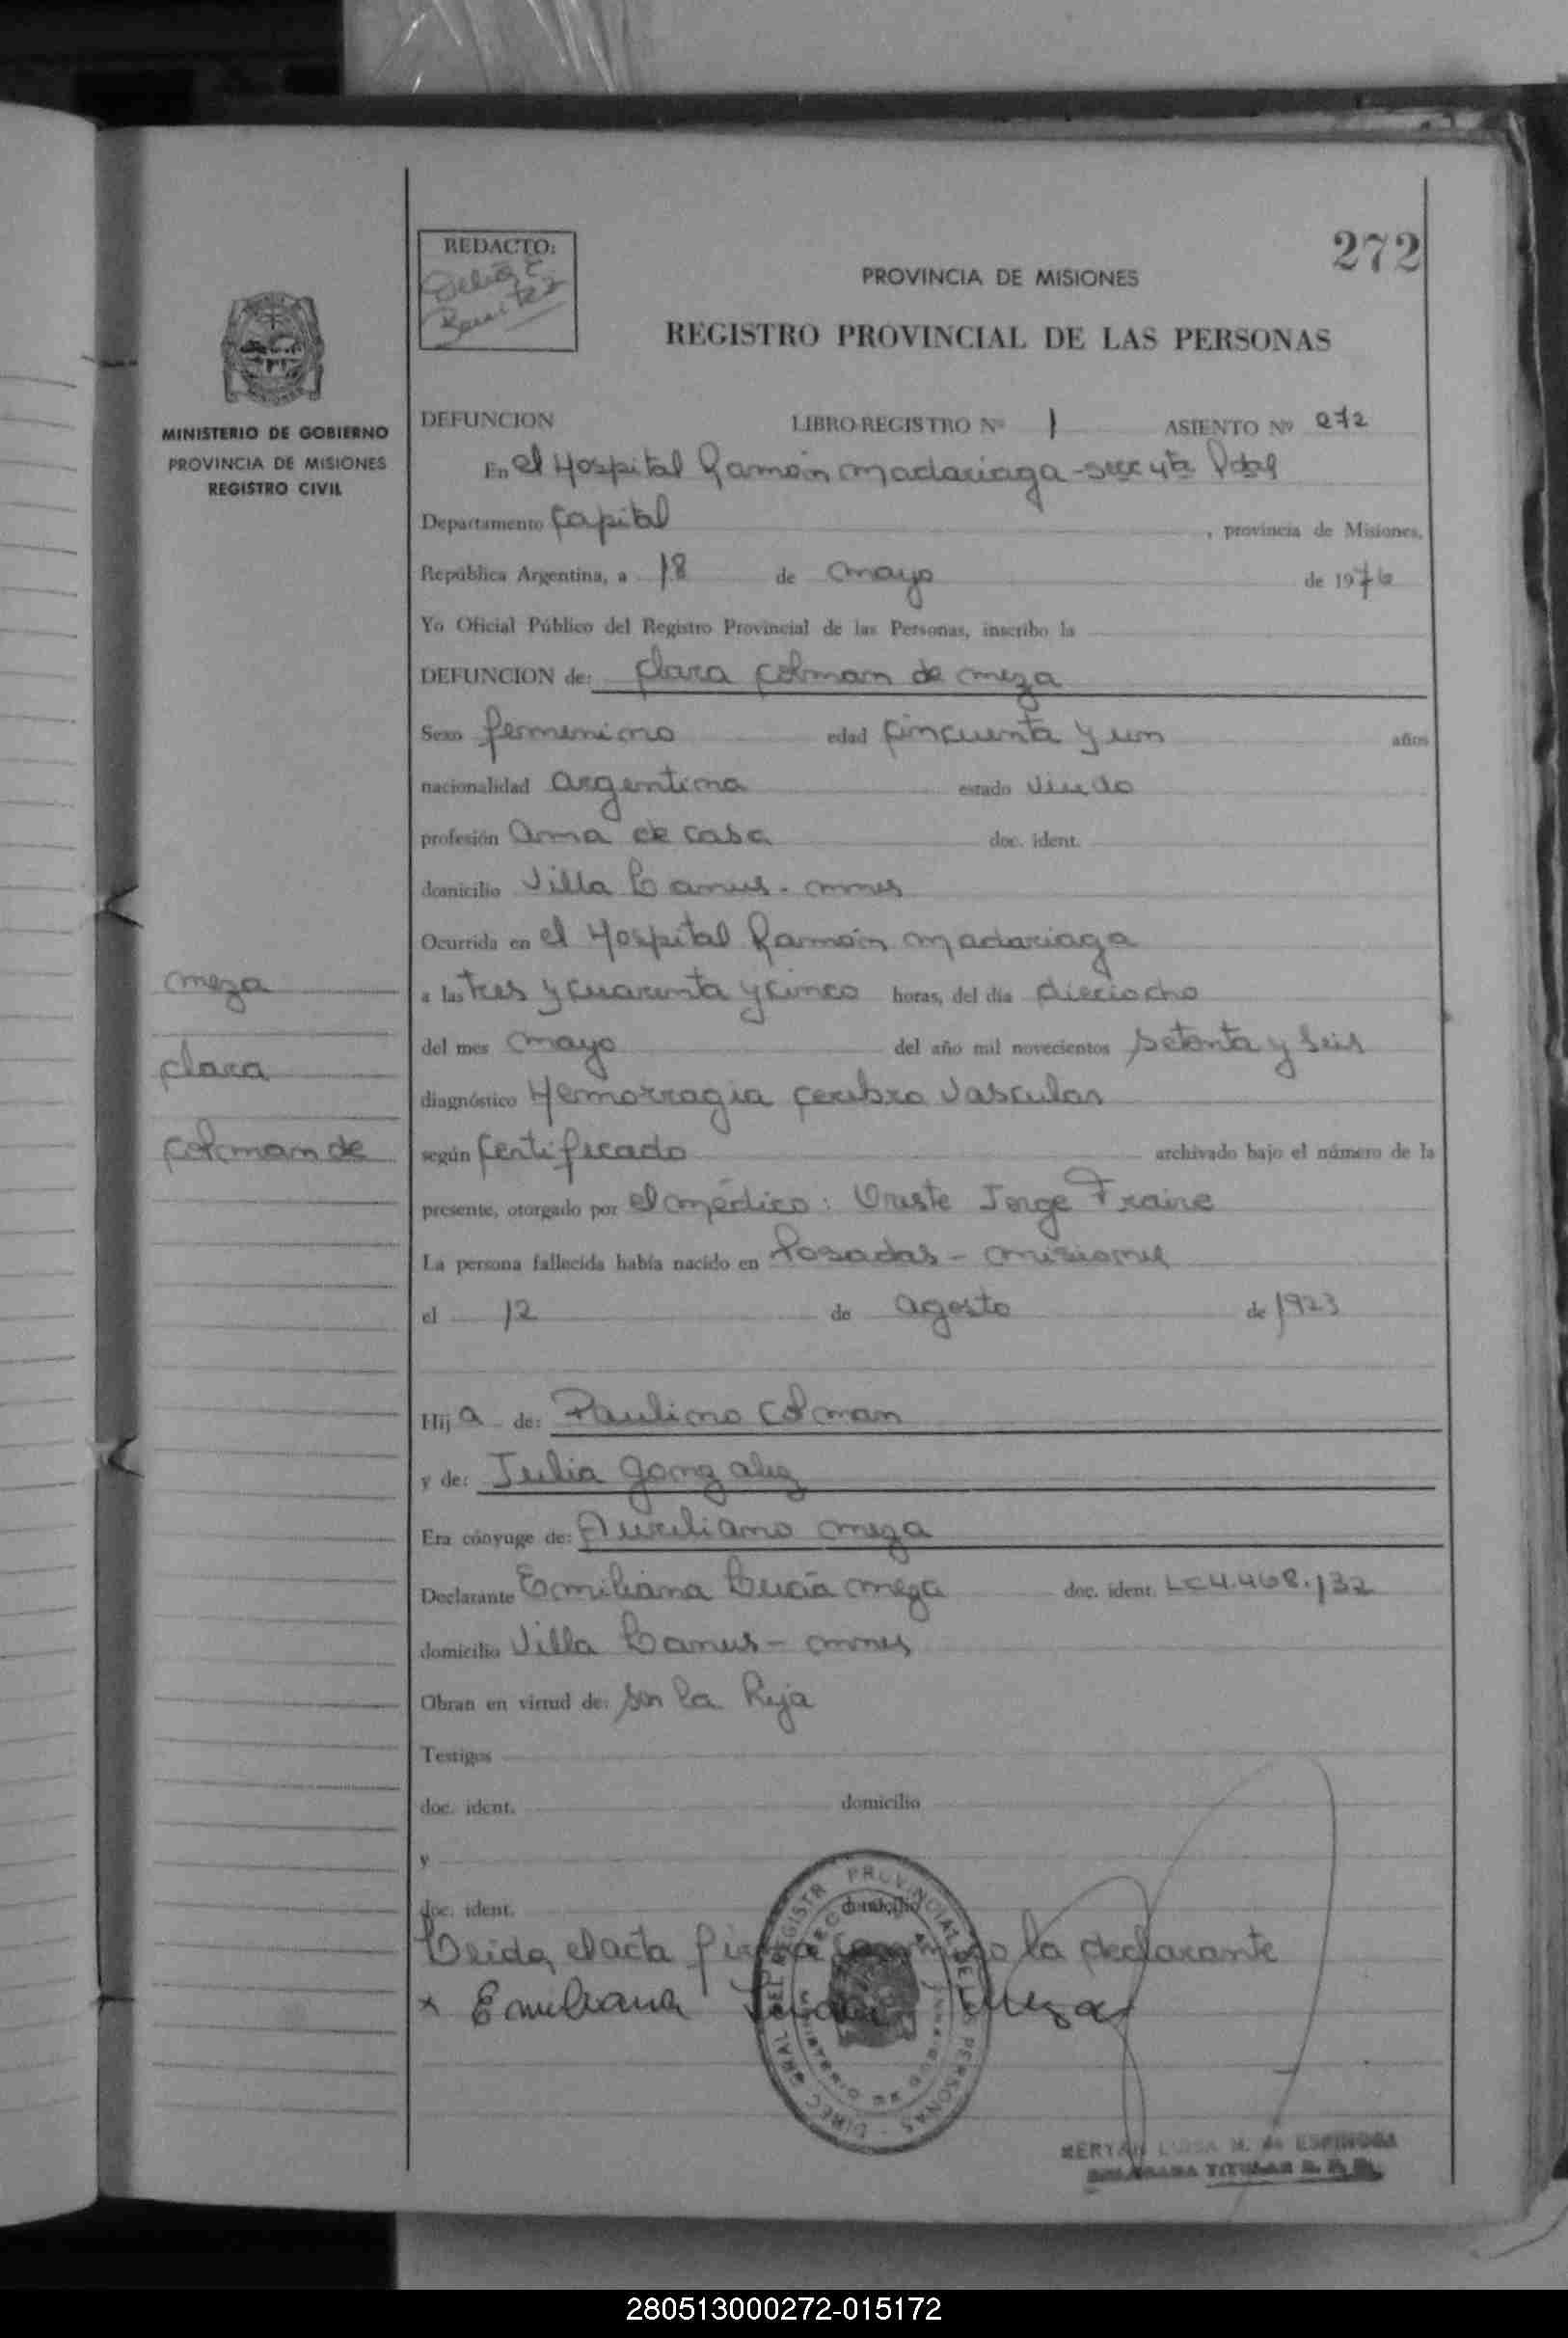 272
REDACTO:
Delia E
Benitez
PROVINCIA DE MISIONES
REGISTRO PROVINCIAL DE LAS PERSONAS
MINISTERIO DE GOBIERNO
PROVINCIA DE MISIONES
REGISTRO CIVIL
DEFUNCION LIBRO REGISTRO Nº 1 ASIENTO Nº 272
En el Hospital Ramón madariaga - secc 4ta Pdas
Departamento Capital , provincia de Misiones,
República Argentina, a 18 de mayo de 1976
Yo Oficial Público del Registro Provincial de las Personas, inscribo la
DEFUNCION de: Clara Colman de meza
Sexo femenino edad Cincuenta y un años
nacionalidad argentina estado viudo
profesión Ama de casa doc. ident.
domicilio Villa Lanus - mnes
Ocurrida en el Hospital Ramón madariaga
a las tres y cuarenta y cinco horas, del día dieciocho
del mes mayo del año mil novecientos setenta y seis
diagnóstico Hemorragia cerebro vascular
según Certificado archivado bajo el número de la
presente, otorgado por el médico: Oreste Jorge Fraire
La persona fallecida había nacido en Posadas - misiones
el 12 de agosto de 1923
Hija de: Paulino Colman
y de: Julia gonzalez
Era cónyuge de: Aureliano meza
Declarante Emiliana Lucia meza doc. ident. LC 4.468.132
domicilio Villa Lanus - mnes
Obran en virtud de: ser la hija
Testigos
doc. ident. domicilio
y
doc. ident. domicilio
Leida el acta firma conmigo la declarante
x Emiliana Lucia Meza
meza
Clara
Colman de
DIREC GRAL DEL REGISTR PROVINCIAL DE LAS PERSONAS
LUISA M. de ESPINOSA
TITULAR
280513000272-015172